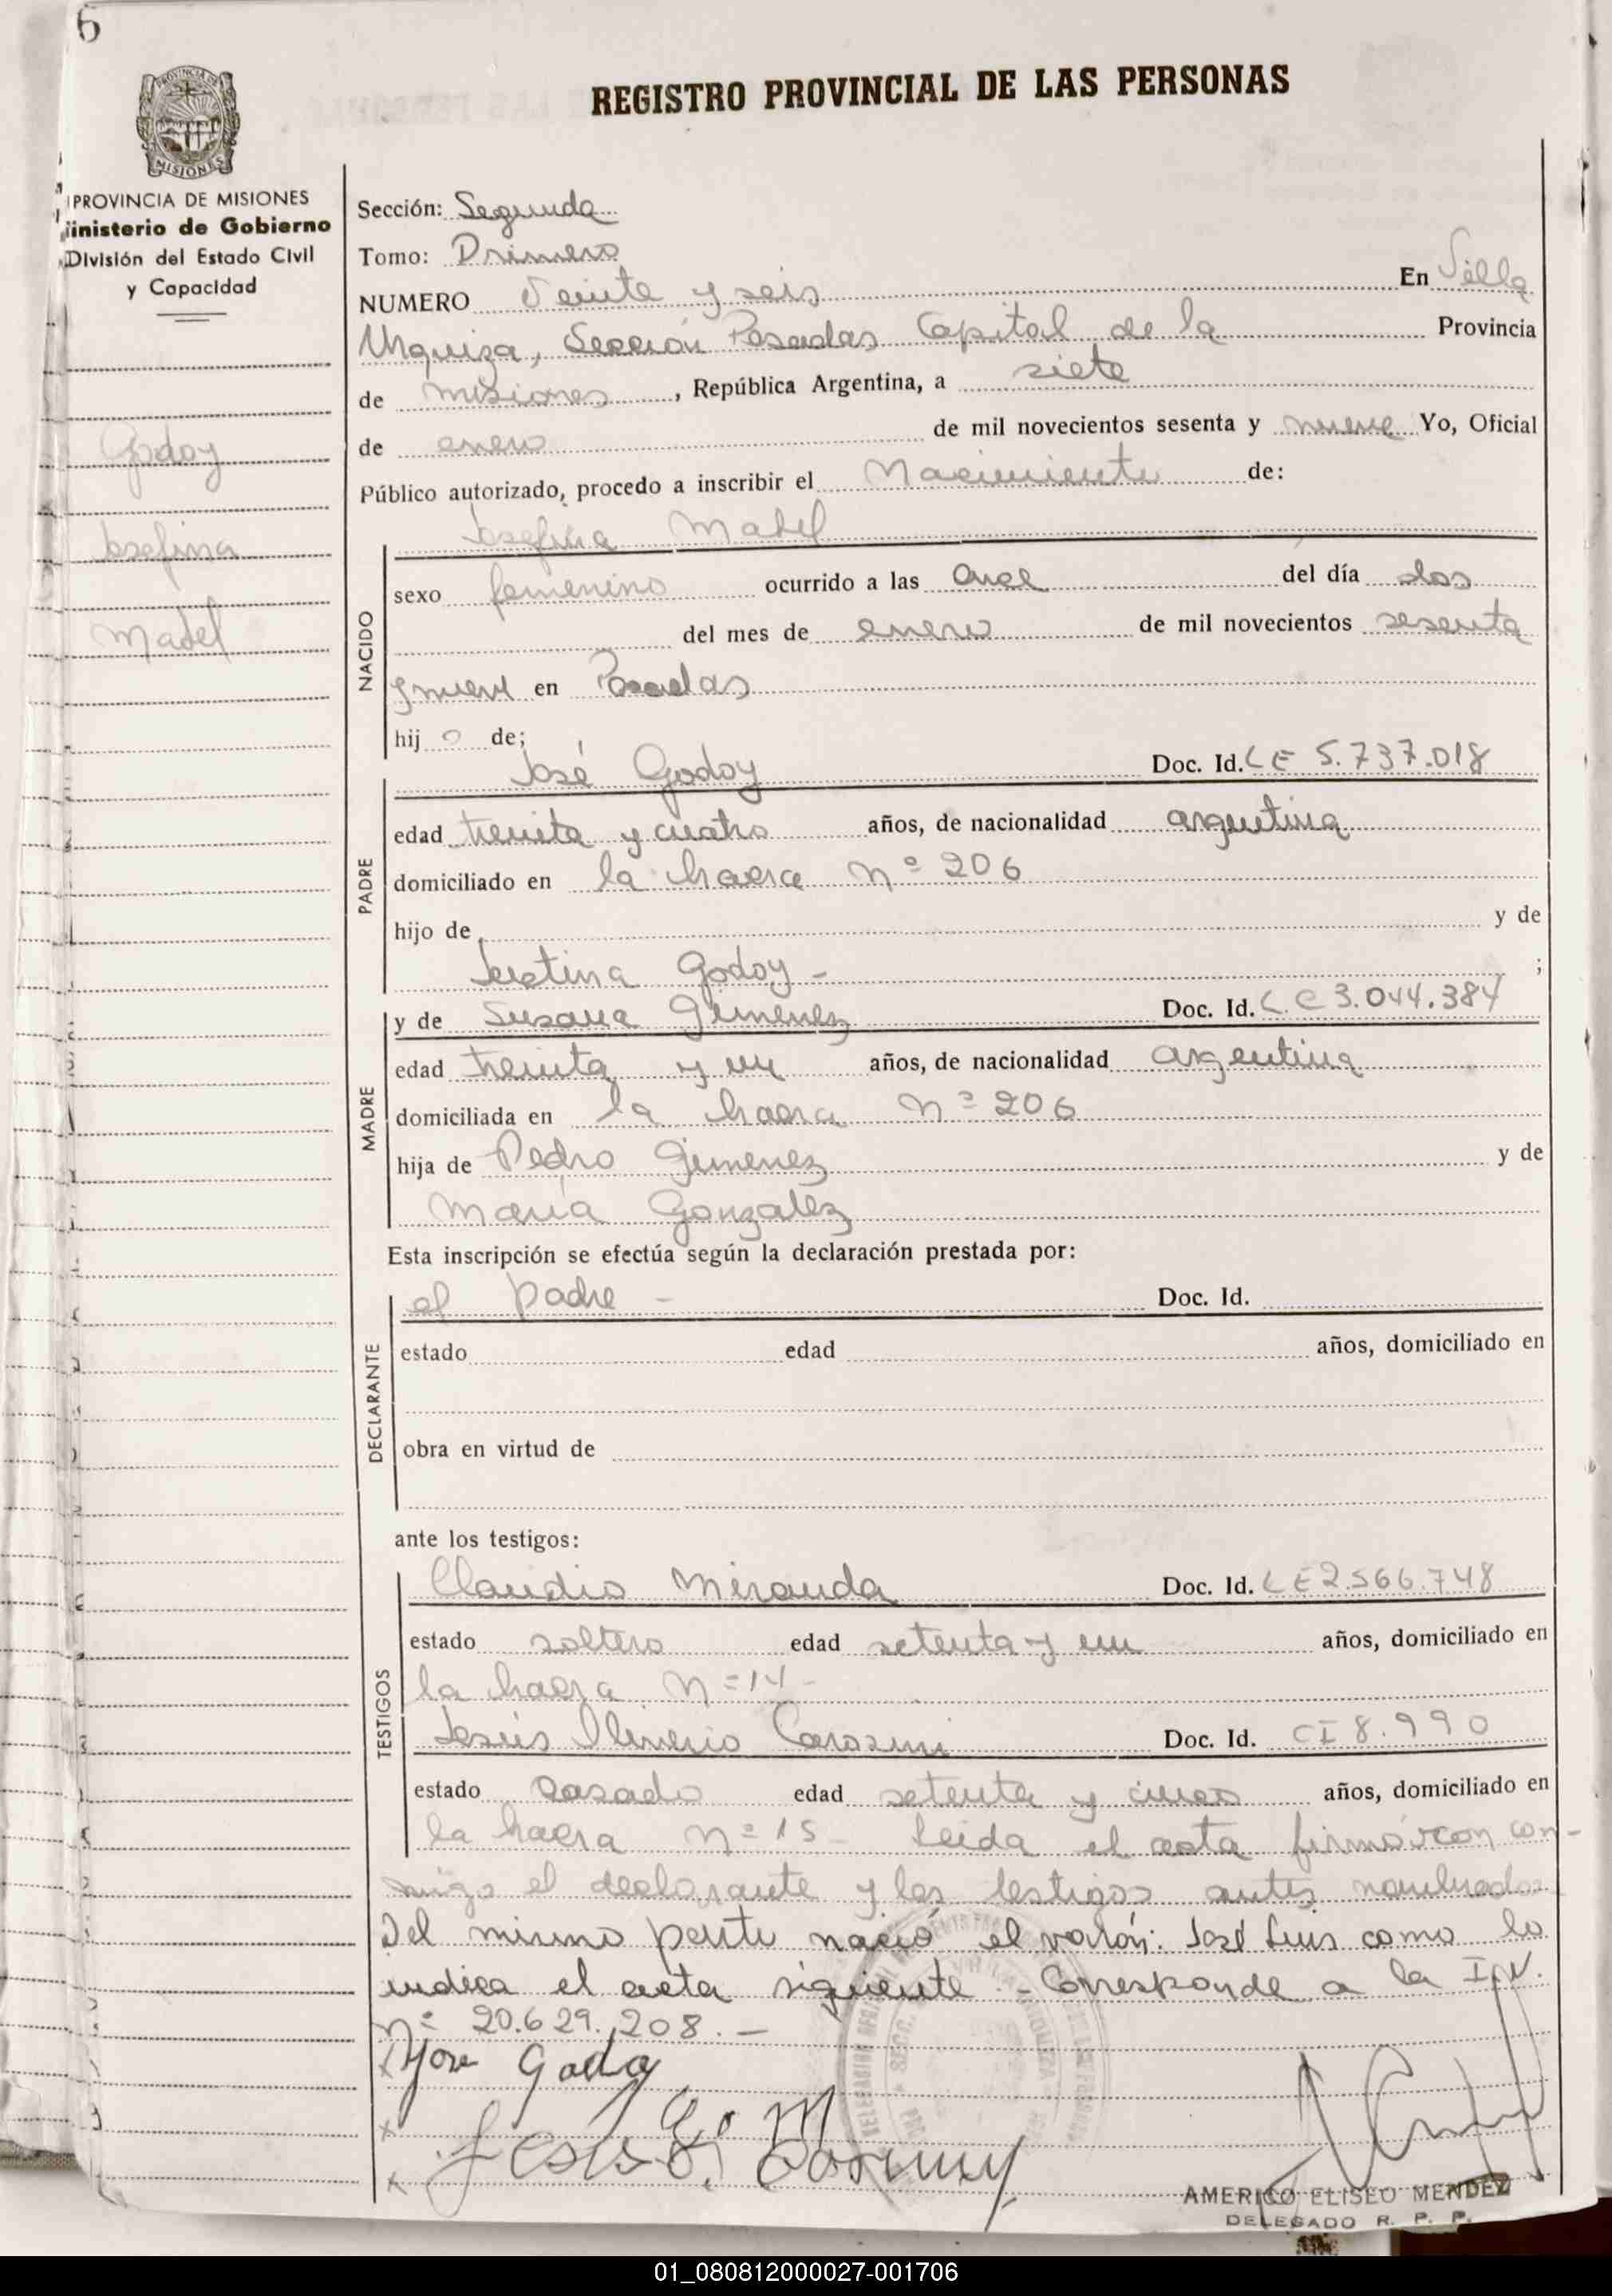 6
REGISTRO PROVINCIAL DE LAS PERSONAS
PROVINCIA DE MISIONES
Ministerio de Gobierno
División del Estado Civil
y Capacidad
Godoy
Josefina
Mabel
Sección: Segunda
Tomo: Primero
NUMERO Veinte y seis En Villa
Urquiza, Sección Posadas Capital de la Provincia
de misiones, República Argentina, a siete
de enero de mil novecientos sesenta y nueve Yo, Oficial
Público autorizado, procedo a inscribir el Nacimiento de:
Josefina Mabel
NACIDO
sexo femenino ocurrido a las once del día dos
del mes de enero de mil novecientos sesenta
y nueve en Posadas
hij o de;
PADRE
José Godoy Doc. Id. LE 5.737.018
edad treinta y cuatro años, de nacionalidad argentina
domiciliado en la chacra Nº 206
hijo de y de
Justina Godoy - ;
MADRE
y de Susana Gimenez Doc. Id. L.C 3.044.384
edad treinta y un años, de nacionalidad argentina
domiciliada en la chacra Nº 206
hija de Pedro Gimenez y de
María Gonzalez
Esta inscripción se efectúa según la declaración prestada por:
DECLARANTE
el padre - Doc. Id.
estado edad años, domiciliado en
obra en virtud de
ante los testigos:
TESTIGOS
Claudio Miranda Doc. Id. LE 2.566.748
estado soltero edad setenta y un años, domiciliado en
la chacra Nº 14 -
Jesús Oliverio Doc. Id. CI 8.990
estado casado edad setenta y cinco años, domiciliado en
la chacra Nº 15 - Leida el acta firmáron con-
migo el declarante y los testigos antes nombrados
Del mismo parto nació el varón: José Luis como lo
indica el acta siguiente - Corresponde a la I.N.
Nº 20.629.208. -
x Jose Godoy
x
x Jesus O.
AMERICO ELISEO MENDEZ
DELEGADO R. P. P.
01_080812000027-001706